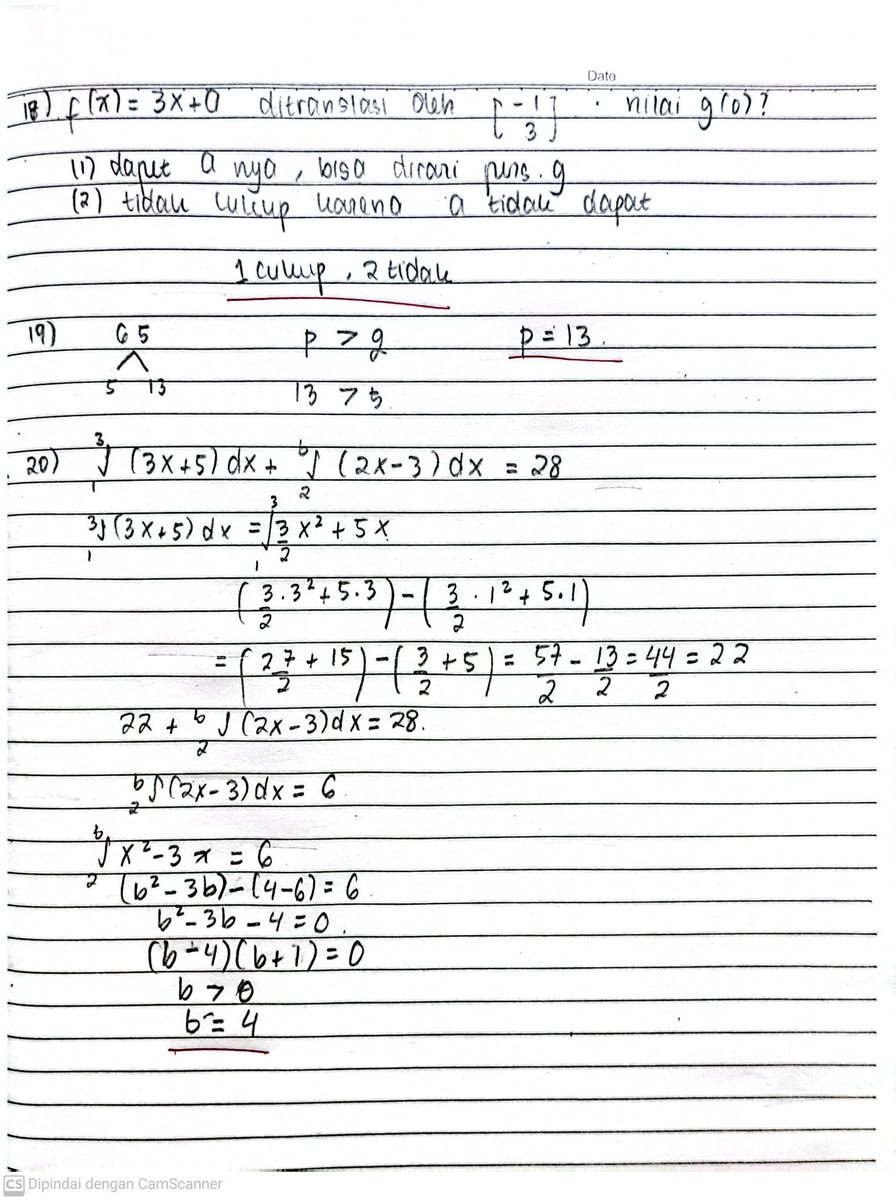 Date
18) f(x) = 3x+a ditranslasi oleh [-1 3] . nilai g(0)?
(1) dapet a nya, bisa dicari pers. g
(2) tidak cukup karena a tidak dapat
1 cukup, 2 tidak
19) 65 p > q p = 13.
5 13 13 > 5
20) 3∫1 (3x+5) dx + b∫2 (2x-3) dx = 28
3∫1 (3x+5) dx = 3∫1 3/2 x² + 5x
(3/2 · 3² + 5·3) - (3/2 · 1² + 5·1)
= (27/2 + 15) - (3/2 + 5) = 57/2 - 13/2 = 44/2 = 22
22 + b∫2 (2x-3) dx = 28.
b∫2 (2x-3) dx = 6
b∫2 x² - 3x = 6
(b² - 3b) - (4-6) = 6
b² - 3b - 4 = 0.
(b-4)(b+1) = 0
b > 0
b = 4
CS Dipindai dengan CamScanner